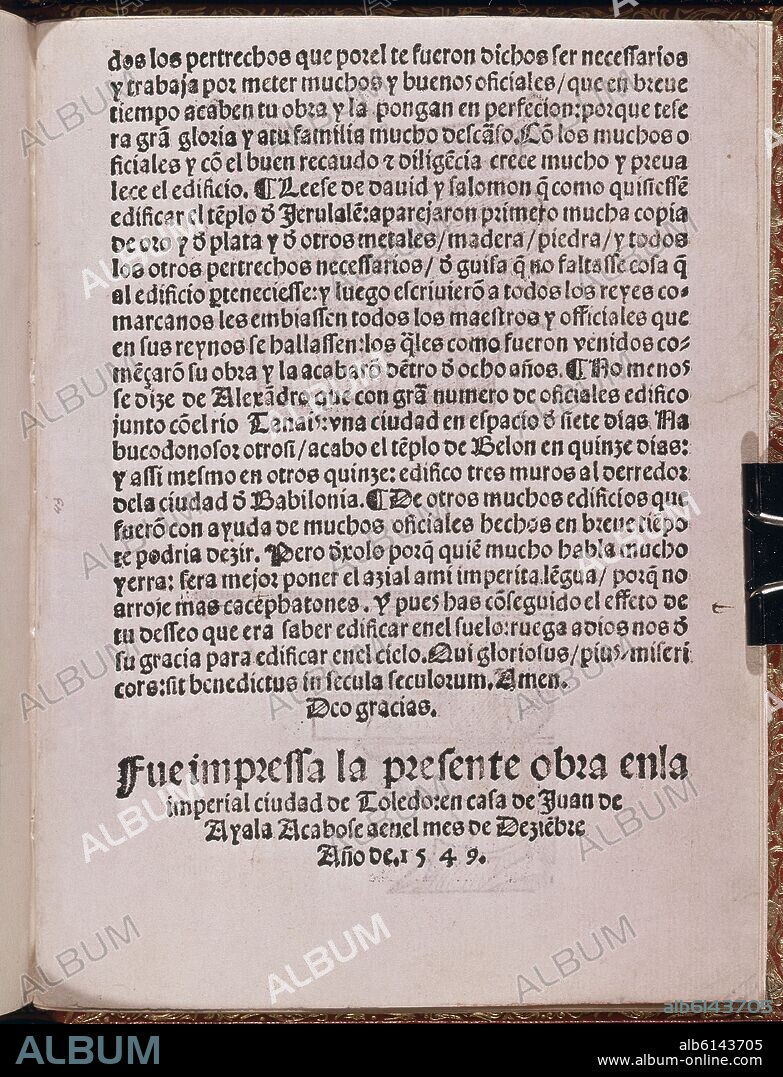 dos los pertrechos que porel te fueron dichos ser necessarios
y trabaja por meter muchos y buenos oficiales/que en breue
tiempo acaben tu obra y la pongan en perfecion:porque tese
ra grã gloria y atu familia mucho descãso.Cõ los muchos o
ficiales y cõ el buen recaudo ⁊ diligẽcia crece mucho y preua
lece el edificio. ¶Leese de dauid y salomon q̃ como quisiessẽ
edificar el tẽplo đ Jerusalẽ:aparejaron primero mucha copia
de oro y đ plata y đ otros metales/madera/piedra/y todos
los otros pertrechos necessarios/ đ guisa q̃ no faltasse cosa q̃
al edificio ꝑteneciesse:y luego escriuierõ a todos los reyes co-
marcanos les embiassen todos los maestros y officiales que
en sus reynos se hallassen:los q̃les como fueron venidos co-
mẽçarõ su obra y la acabarõ dẽtro đ ocho años. ¶No menos
se dize de Alexãdre que con grã numero de oficiales edifico
junto cõel rio Tanais:vna ciudad en espacio đ siete dias Na
bucodonosor otrosi/acabo el tẽplo de Belon en quinze dias:
y assi mesmo en otros quinze: edifico tres muros al derredor
dela ciudad đ Babilonia.¶De otros muchos edificios que
fuerõ con ayuda de muchos oficiales hechos en breue tiẽpo
te podria dezir. Pero đxolo porq̃ quiẽ mucho habla mucho
yerra: sera mejor poner el azial ami imperita lẽgua/ porq̃ no
arroje mas cacephatones. Y pues has cõseguido el effeto de
tu desseo que era saber edificar enel suelo:ruega adios nos đ
su gracia para edificar enel cielo.Qui gloriosus/pius/miseri
cors:sit benedictus in secula seculorum.Amen.
Deo gracias.
Fue impressa la presente obra enla
imperial ciudad de Toledo:en casa de Juan de
Ayala Acabose aenel mes de Deziẽbre
Año de.1549.
ALBUM
alb6143705
www.album-online.com